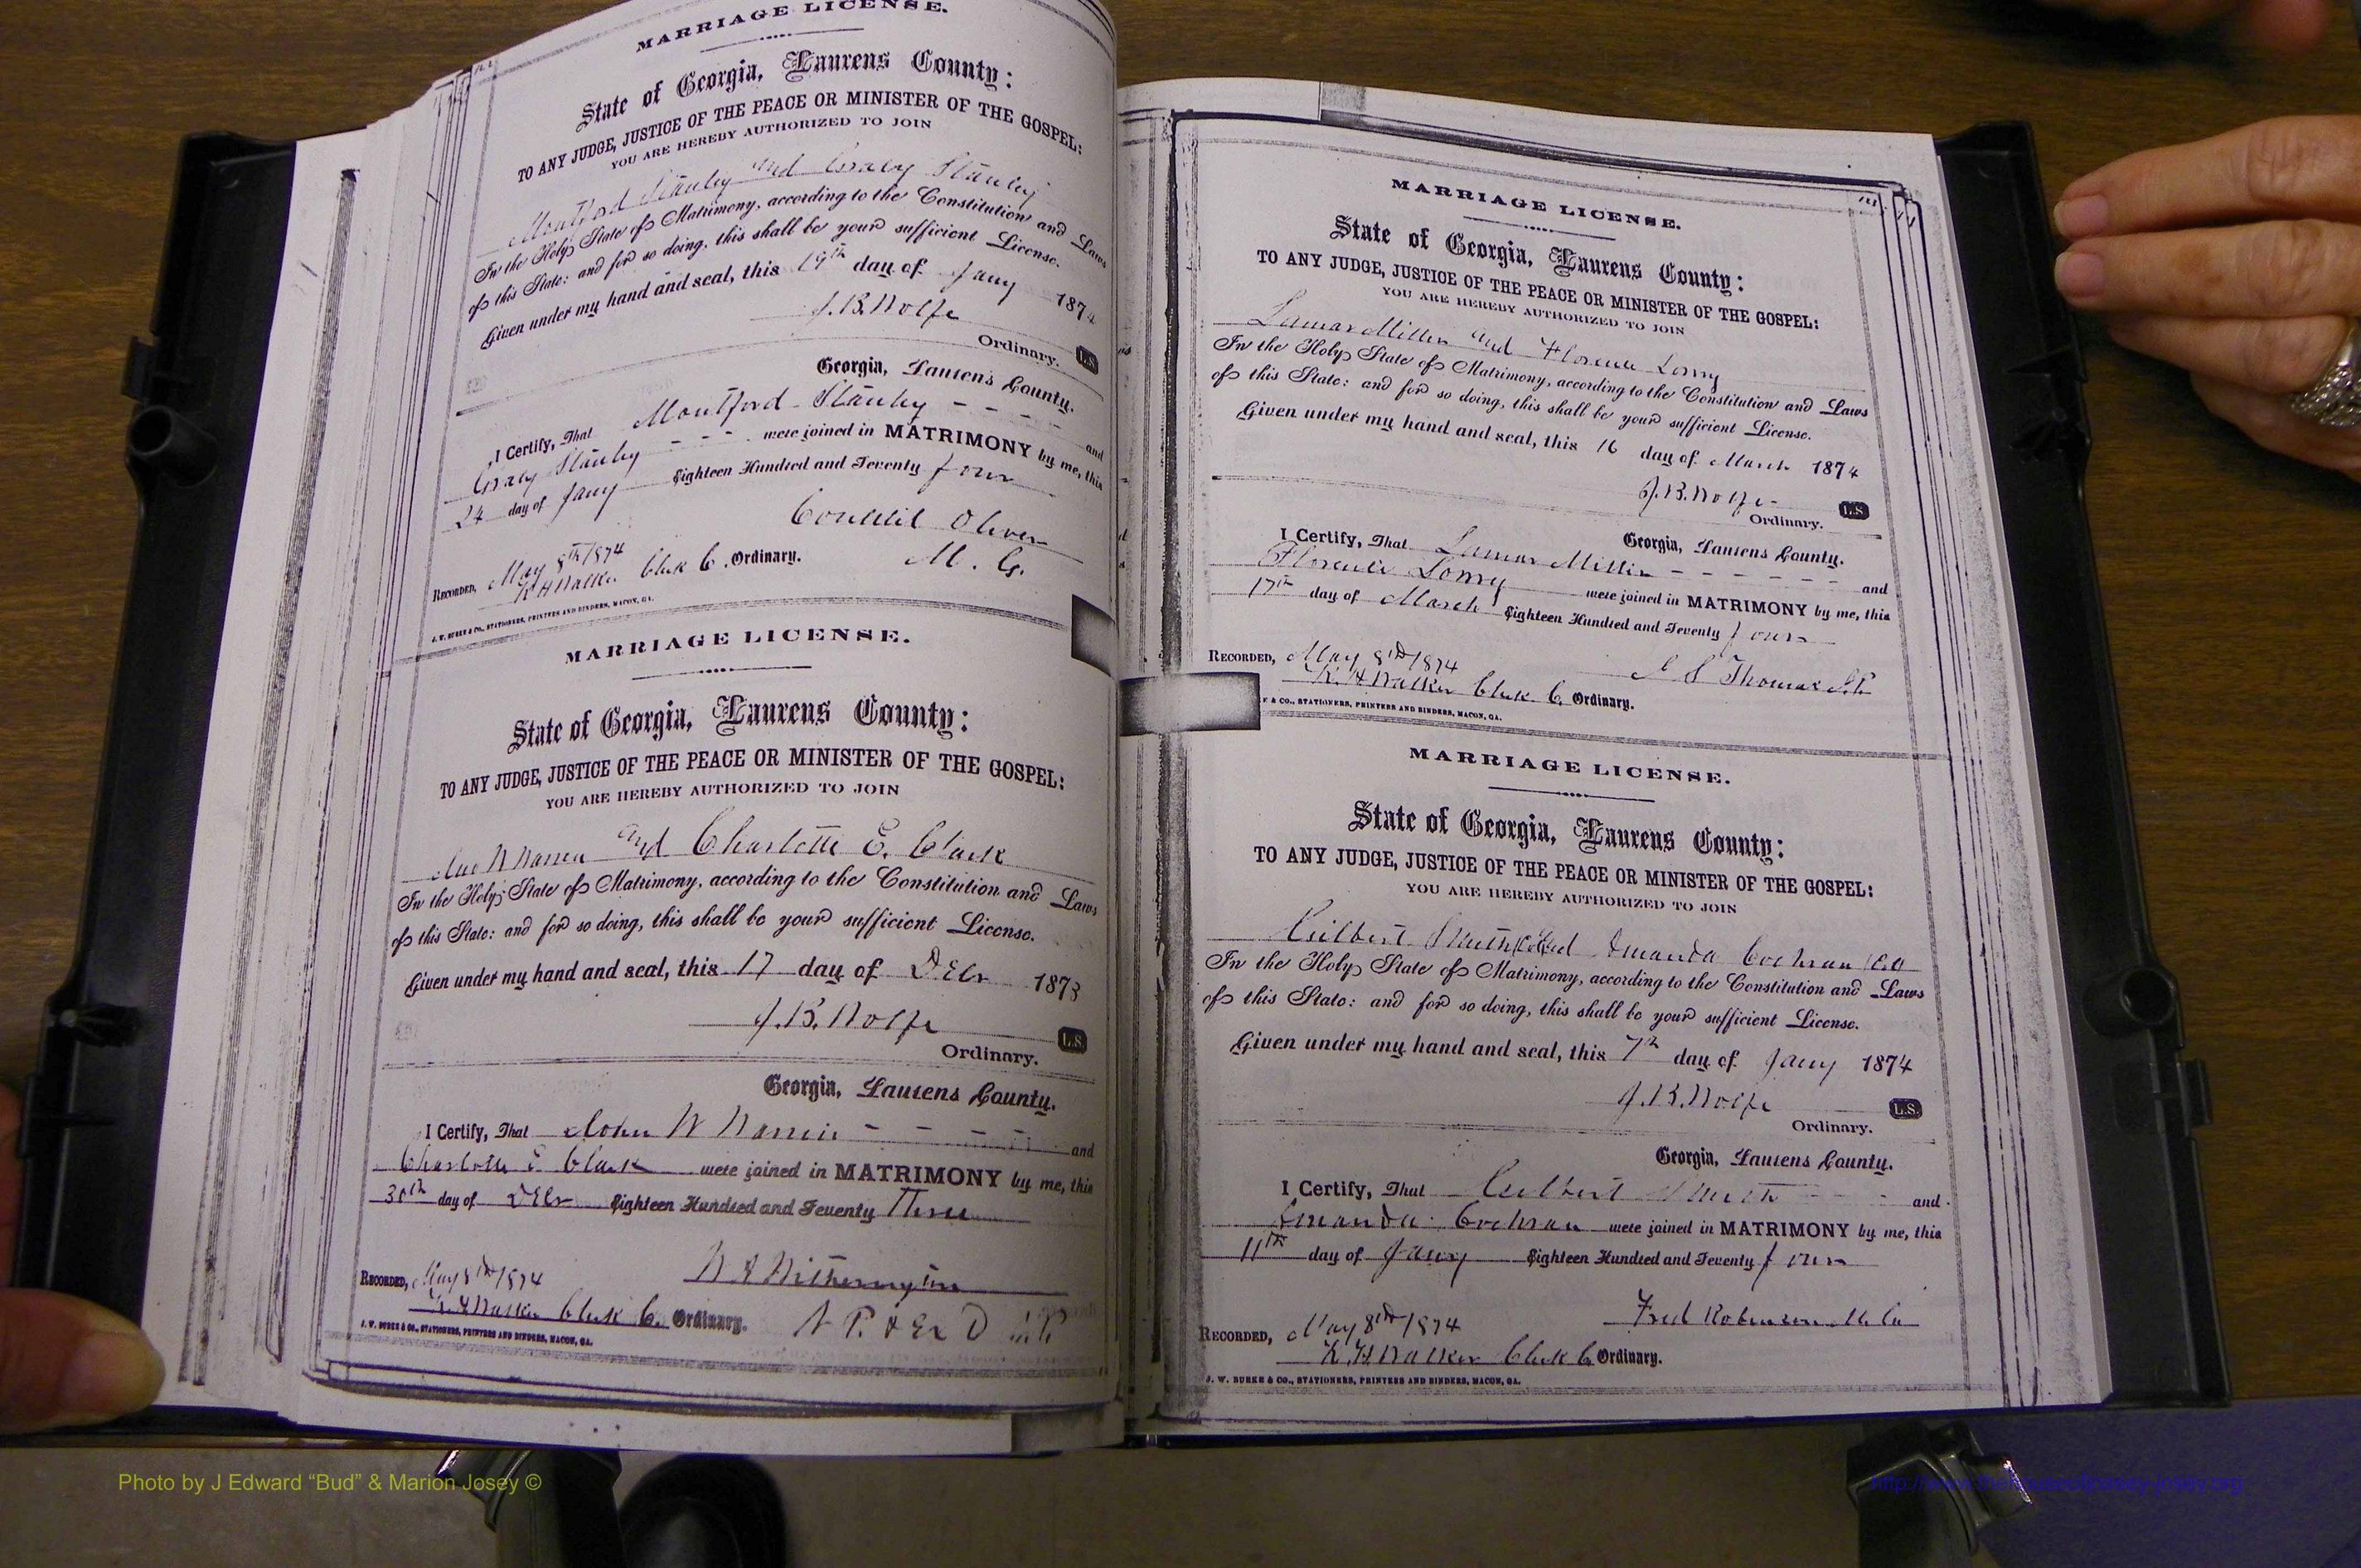 MARRIAGE LICENSE.
State of Georgia, Laurens County:
TO ANY JUDGE, JUSTICE OF THE PEACE OR MINISTER OF THE GOSPEL:
YOU ARE HEREBY AUTHORIZED TO JOIN
Montford Stanley and Stanley
In the Holy State of Matrimony, according to the Constitution and Laws
of this State: and for so doing, this shall be your sufficient License.
Given under my hand and seal, this 19th day of Jany 1874
J.B. Wolfe
Ordinary. L.S.
Georgia, Laurens County.
I Certify, That Montford Stanley - - - - and
Stanley - - - were joined in MATRIMONY by me, this
24 day of Jany Eighteen Hundred and Seventy four
Oliver
M. G.
Recorded, May 8th 1874
Walker Clerk C. Ordinary.
J. W. BURKE & CO., STATIONERS, PRINTERS AND BINDERS, MACON, GA.
MARRIAGE LICENSE.
State of Georgia, Laurens County:
TO ANY JUDGE, JUSTICE OF THE PEACE OR MINISTER OF THE GOSPEL:
YOU ARE HEREBY AUTHORIZED TO JOIN
and Charlotte E. Clark
In the Holy State of Matrimony, according to the Constitution and Laws
of this State: and for so doing, this shall be your sufficient License.
Given under my hand and seal, this 17 day of Decr 1873
J.B. Wolfe
L.S.
Ordinary.
Georgia, Laurens County.
I Certify, That John W - - - - and
Charlotte E Clark were joined in MATRIMONY by me, this
30th day of Decr Eighteen Hundred and Seventy Three
Witherington
Recorded, May 8th 1874
Walker Clerk C. Ordinary.
J. W. BURKE & CO., STATIONERS, PRINTERS AND BINDERS, MACON, GA.
MARRIAGE LICENSE.
State of Georgia, Laurens County:
TO ANY JUDGE, JUSTICE OF THE PEACE OR MINISTER OF THE GOSPEL:
YOU ARE HEREBY AUTHORIZED TO JOIN
Lamar Miller and Florence
In the Holy State of Matrimony, according to the Constitution and Laws
of this State: and for so doing, this shall be your sufficient License.
Given under my hand and seal, this 16 day of March 1874
J.B. Wolfe
Ordinary. L.S.
Georgia, Laurens County.
I Certify, That Lamar Miller - - - - - - and
Florence were joined in MATRIMONY by me, this
17th day of March Eighteen Hundred and Seventy four
S Thomas J.P.
Recorded, May 8th 1874
Walker Clerk C. Ordinary.
& CO., STATIONERS, PRINTERS AND BINDERS, MACON, GA.
MARRIAGE LICENSE.
State of Georgia, Laurens County:
TO ANY JUDGE, JUSTICE OF THE PEACE OR MINISTER OF THE GOSPEL:
YOU ARE HEREBY AUTHORIZED TO JOIN
Gilbert Smith and Amanda Cochran
In the Holy State of Matrimony, according to the Constitution and Laws
of this State: and for so doing, this shall be your sufficient License.
Given under my hand and seal, this 7th day of Jany 1874
J.B. Wolfe
L.S.
Ordinary.
Georgia, Laurens County.
I Certify, That Gilbert Smith - - - and
Amanda Cochran were joined in MATRIMONY by me, this
11th day of Jany Eighteen Hundred and Seventy four
Fred Robinson
Recorded, May 8th 1874
Walker Clerk C. Ordinary.
J. W. BURKE & CO., STATIONERS, PRINTERS AND BINDERS, MACON, GA.
Photo by J Edward “Bud” & Marion Josey ©